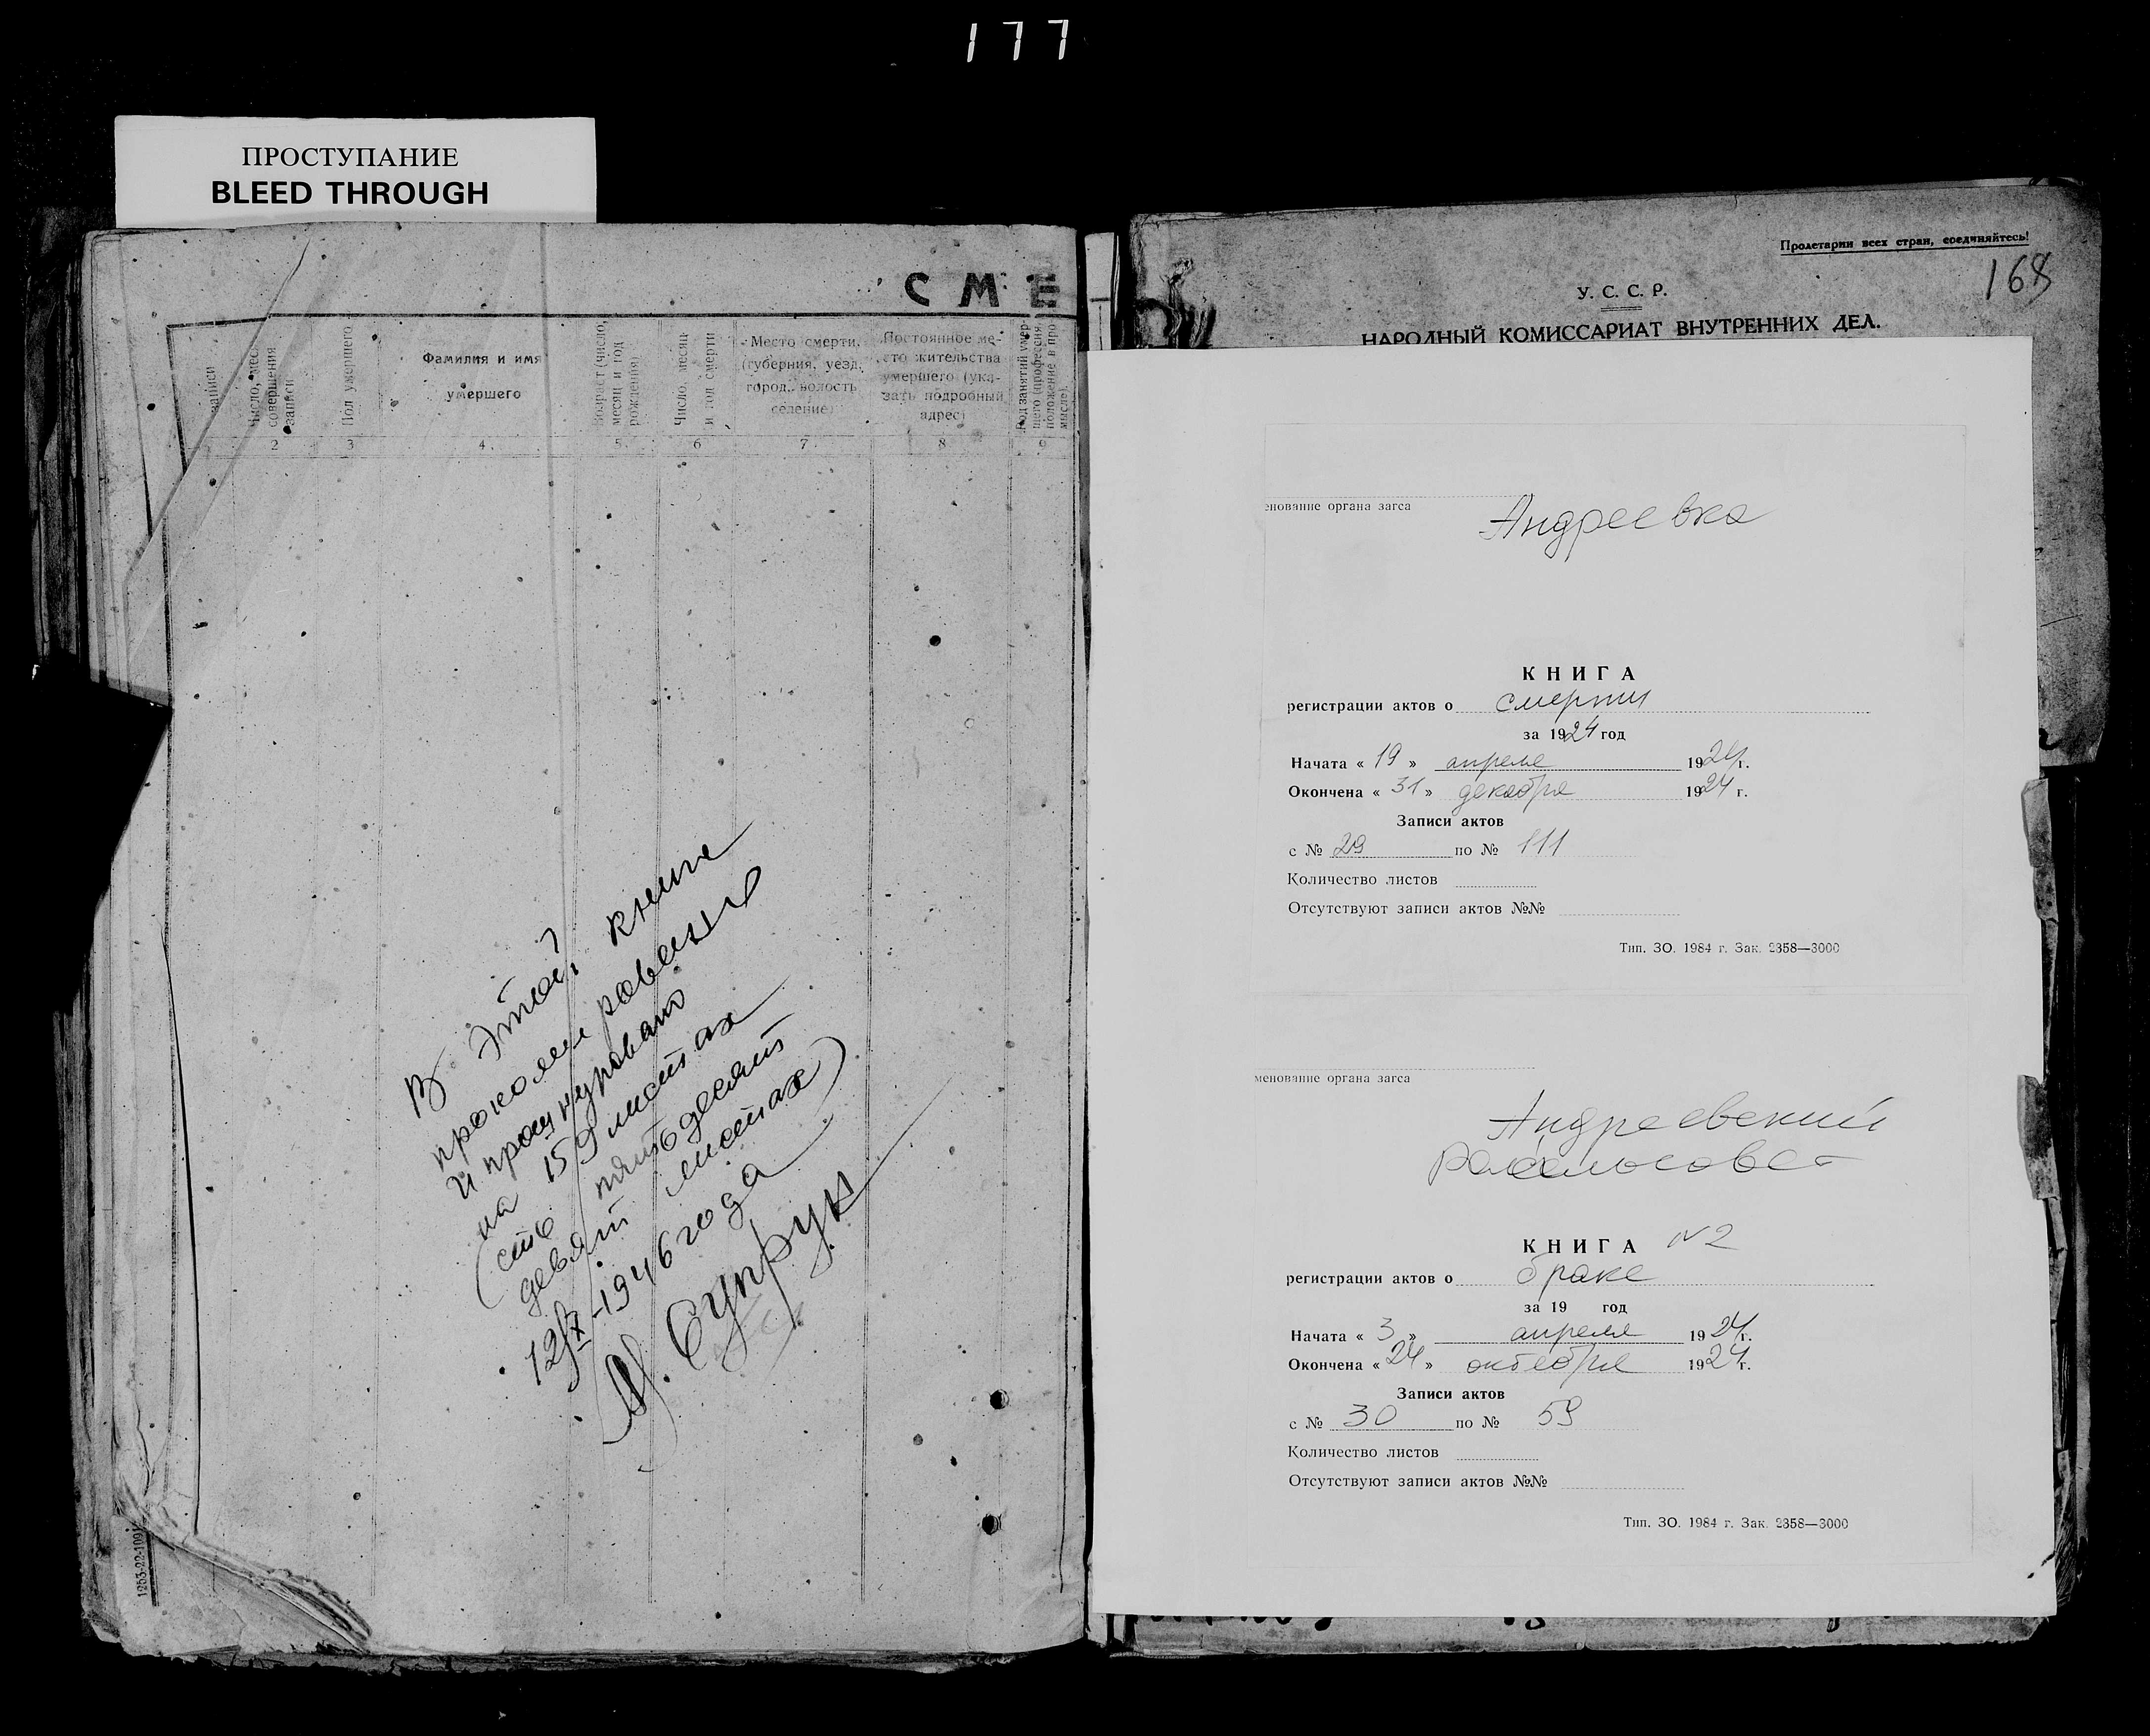 177
ПРОСТУПАНИЕ
BLEED THROUGH
СМЕ
записи
Число, мес.
совершения
записи
Пол умершего
Фамилия и имя
умершего
Возраст (число,
месяц и год
рождения)
Число, месяц
и год смерти
Место смерти,
(губерния, уезд,
город, волость
селение)
Постоянное ме-
сто жительства
умершего (ука-
зать подробный
адрес)
Род занятий умер-
шего (профессия,
положение в про-
мысле).
2 3 4 5 6 7 8 9
В этой книге
и прошнуровано
на 159 листах
(сто пятьдесят
девять листах)
12/X-1946 года
М. Супрук
1253-22-1091
Пролетарии всех стран, соединяйтесь!
168
У. С. С. Р.
НАРОДНЫЙ КОМИССАРИАТ ВНУТРЕННИХ ДЕЛ.
енование органа загса
Андреевка
КНИГА
регистрации актов о смерти
за 1924 год
Начата « 19 » апреля 1924 г.
Окончена « 31 » декабря 1924 г.
Записи актов
с № 29 по № 111
Количество листов
Отсутствуют записи актов №№
Тип. ЗО. 1984 г. Зак. 2358—3000
менование органа загса
Андреевский
КНИГА №2
регистрации актов о браке
за 19 год
Начата « 3 » апреля 1924 г.
Окончена « 24 » октября 1924 г.
Записи актов
с № 30 по № 59
Количество листов
Отсутствуют записи актов №№
Тип. ЗО. 1984 г. Зак. 2358—3000